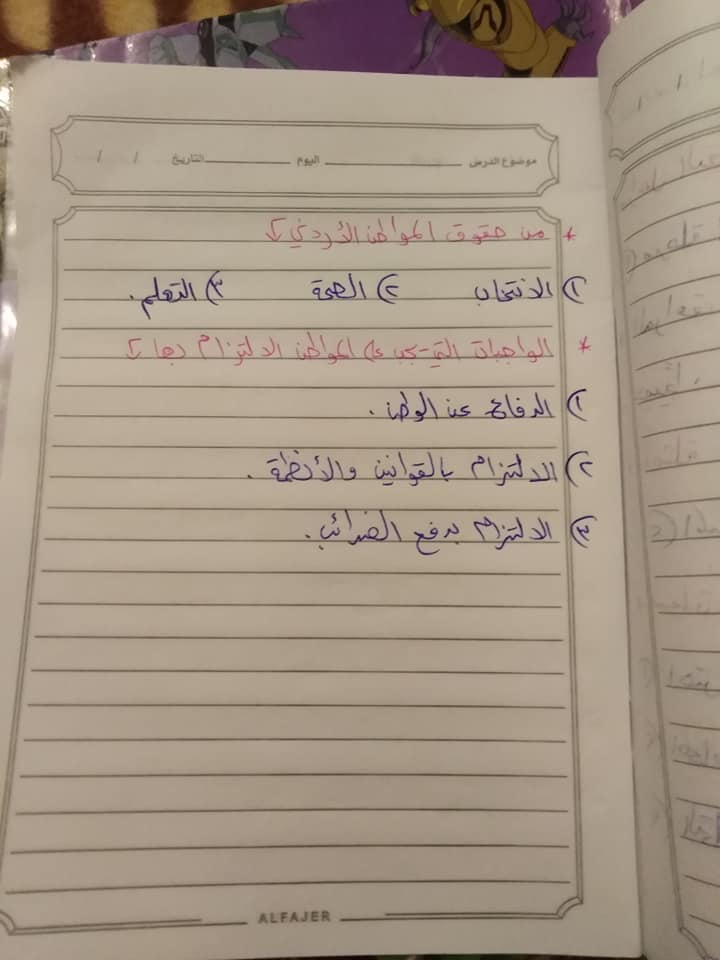 موضوع الدرس ــــــــ اليوم ــــــــ التاريخ / /
* من حقوق المواطن الأردني :-
١) الانتخاب ٢) الصحة ٣) التعلم .
* الواجبات التي يجب على المواطن الالتزام بها :-
١) الدفاع عن الوطن .
٢) الالتزام بالقوانين والأنظمة .
٣) الالتزام بدفع الضرائب .
ALFAJER